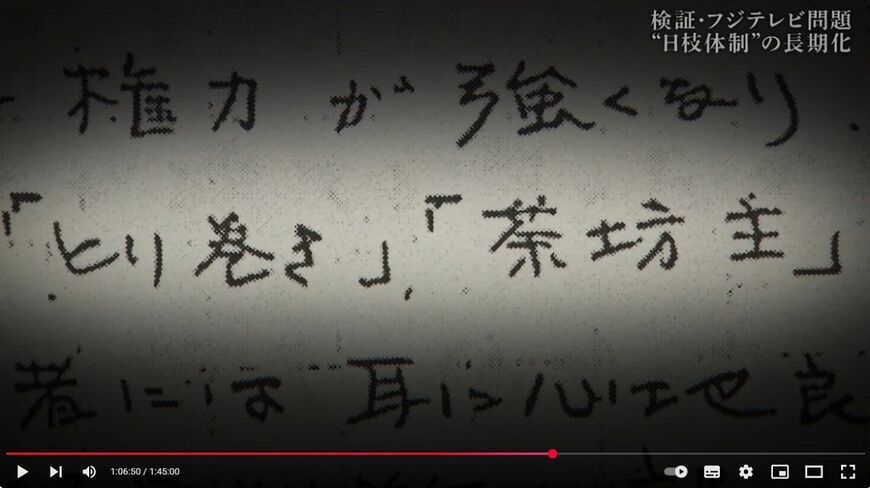 検証・フジテレビ問題
“日枝体制”の長期化
権力が強くなり、
「とり巻き」、「茶坊主」
者には耳に心地良
1:06:50 / 1:45:00